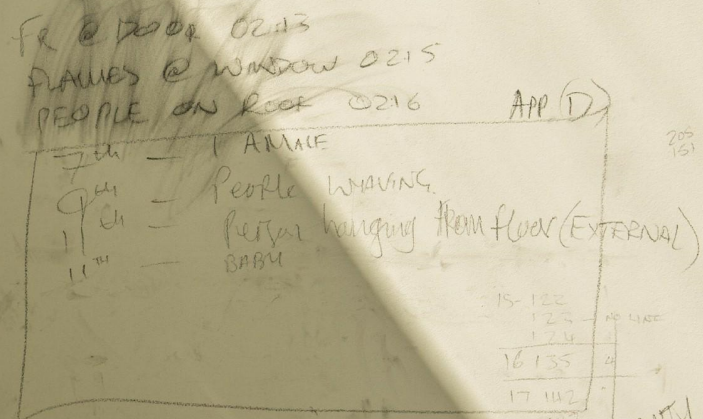 FR @ DOOR 0213
FLAMES @ WINDOW 0215
PEOPLE ON ROOF 0216 APP (D)
7th — 1 AMALE
9th — PEOPLE WAVING.
11th — Person hanging from fluer (EXTERNAL)
11TH — BABY
205
151
15-122
123 — NO LINE
124
16 135 4
17 142